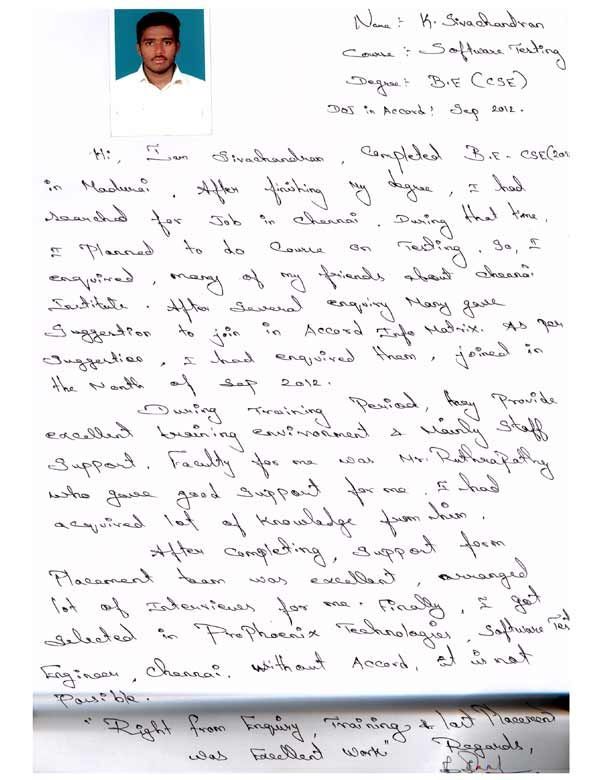 Name :- K. Sivachandran
Course :- Software Testing
Degree :- B.E (CSE)
DOJ in Accord : Sep 2012.
Hi, I am Sivachandran, Completed B.E - CSE(201
in Madurai. After finishing My degree, I had
searched for Job in Chennai. During that time,
I Planned to do Course on Testing. So, I
enquired, many of my friends about Chennai
Institute. After Several enquiry Many gave
Suggestion to join in Accord Info Matrix. As per
Suggestion, I had enquired them, joined in
the Month of Sep 2012.
During Training Period, they Provide
excellent training environment & Mainly Staff
Support. Faculty for me was Mr. Ruthrapathy
who gave good Support for me. I had
acquired lot of Knowledge from him.
After Completing, Support form
Placement team was excellent, arranged
lot of Interviews for me. Finally, I got
Selected in ProPhoenix Technologies, Software Test
Engineer, Chennai. Without Accord, it is not
Possible.
"Right from Enquiry, Training & last Placement
was Excellent Work" Regards,